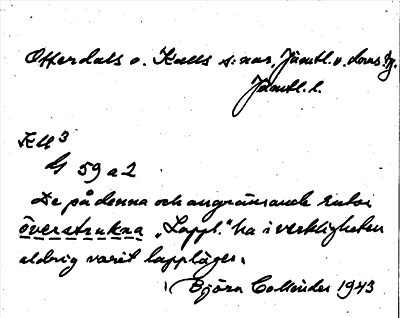 Offerdals o. Kalls s:nar, Jämtl. v. doms.
Jämtl. l.
KU3
G 59 a 2
De på denna och angränsande rutor
överstrukna „Lappl." ha i verkligheten
aldrig varit lappläger.
Björn Collinder 1943